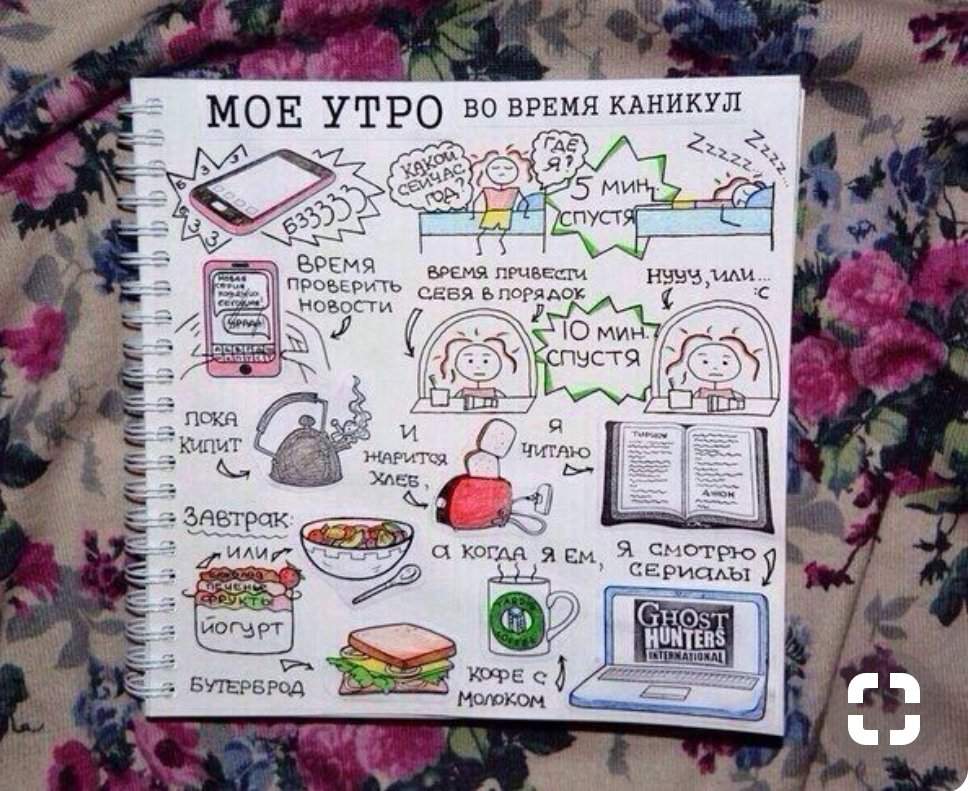 МОЕ УТРО ВО ВРЕМЯ КАНИКУЛ
БЗЗЗЗЗ
КАКОЙ
СЕЙЧАС
ГОД?
ГДЕ
Я?
5 МИН.
СПУСТЯ
Zzzzz...
Zzzz...
НОВАЯ
СЕРИЯ
СЕГОДНЯ
УРА!!!
ВРЕМЯ
ПРОВЕРИТЬ
НОВОСТИ
ВРЕМЯ ПРИВЕСТИ
СЕБЯ В ПОРЯДОК
10 МИН.
СПУСТЯ
НУУУ, ИЛИ...
:С
ПОКА
КИПИТ
И
ЖАРИТСЯ
ХЛЕБ,
Я
ЧИТАЮ
ЗАВТРАК:
ИЛИ
ПЕЧЕНЬЕ
ФРУКТЫ
ЙОГУРТ
БУТЕРБРОД
А КОГДА Я ЕМ,
COFFEE
КОФЕ С
МОЛОКОМ
Я СМОТРЮ
СЕРИАЛЫ
GHOST
HUNTERS
INTERNATIONAL